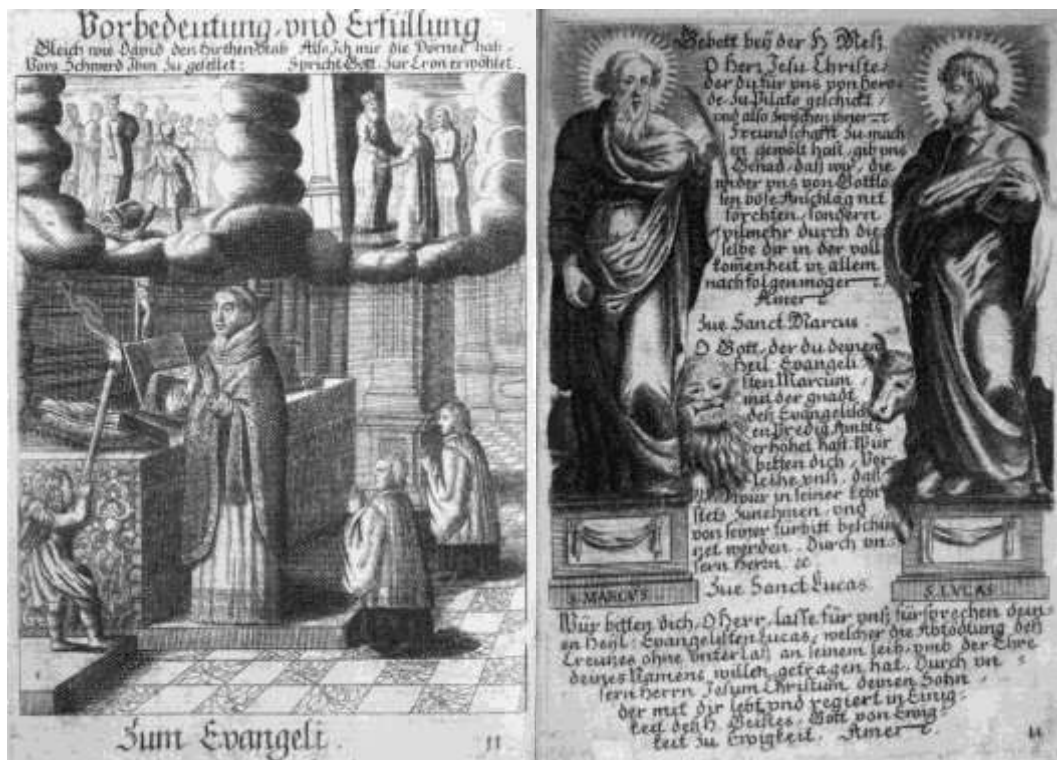 Vorbedeutung vnd Erfüllung
Gleich wie David den Hirthen Stab Also Ich nur die Dörner hab.
Vors Schwerd Ihm Zu gesellet: Spricht Gott Zur Cron erwöhlet.
Zum Evangeli.
11
Gebett beÿ der H Meß.
O Herr Jesu Christe,
der du für vns von Hero-
de Zu Pilato geschickt,
vnd also Zwischen
Freundschafft Zu mach
en gewölt hast, gib vns
Genad, daß wür, die
wider vns von Gottlo
sen böse Anschlag nit
förchten, sondern
vilmehr durch die
selbe dir in der voll
komenheit in allem
nachfolgen möger
Amen
Zue Sanct Marcus.
O Gott, der du deinen
Heil Evangeli
sten Marcum
mit der gnadt
deß Evangelisch
en Predig Ambts
erhöhet hast. Wür
bitten dich, Ver-
leihe vnß, daß
wür in seiner Lehr
stets Zunehmen, vnd
von seiner fürbitt beschüt
zet werden. Durch vn-
sern Herrn. ꝛc
Zue Sanct Lucas.
S. MARCVS
S. LVCAS
Wür bitten dich, O Herr, lasse für vnß fürsprechen dein
en Heÿl: Evangelisten Lucas, welcher die Abtödtung deß
Creutzes ohne vnterlaß an seinem leib, vmb der Ehre
deines Namens willen getragen hat. Durch vn
sern Herrn Jesum Christum deinen Sohn
der mit dir lebt vnd regiert in Einig-
keit deß H. Geistes, Gott von Ewig
keit Zu Ewigkeit. Amen